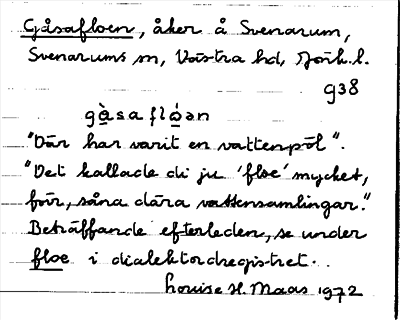 Gåsafloen, åker å Svenarum,
Svenarums sn, Västra hd, Jönk. l.
938
gàsaflóən
"Där har varit en vattenpöl".
"Det kallade di ju 'floe' mycket,
förr, såna dära vattensamlingar."
Beträffande efterleden, se under
floe i dialektordregistret.
Louise H. Maas 1972